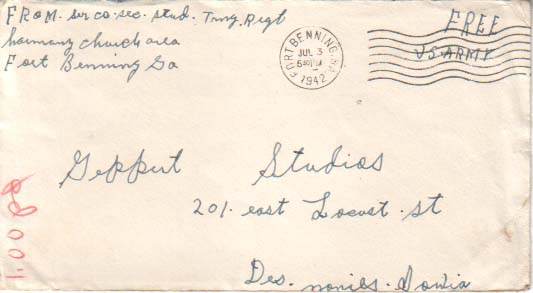 FROM. ser co. sec. stud. Trng. Regt
harmony church area
Fort Benning Ga
FORT BENNING, GA.
JUL 3
1942
FREE
U.S. ARMY
Geppert Studios
201. east Locust. st
Des. monies. Iowia
1.00